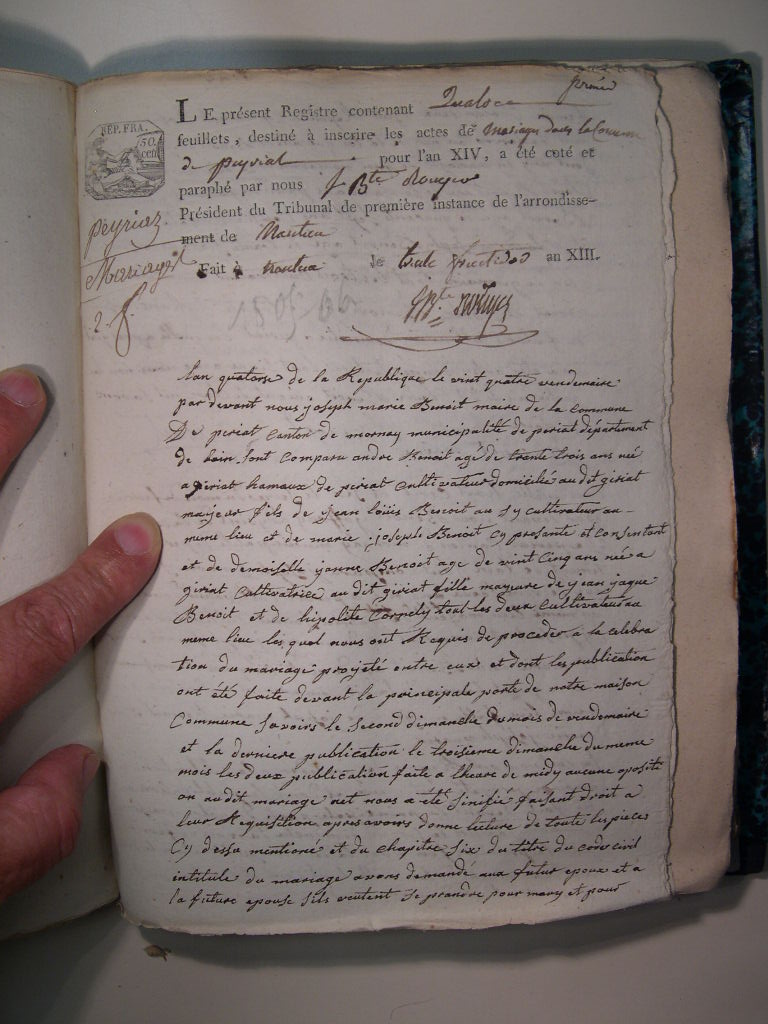 premier
LE présent Registre contenant Quatorze
feuillets, destiné à inscrire les actes de mariages dans la Commune
de peyriat pour l'an XIV, a été coté et
paraphé par nous J Bte Rouyer
Président du Tribunal de première instance de l'arrondisse-
ment de Nantua
Fait à nantua le trente fructidor an XIII.
JBte Rouyer
REP. FRA.
50.
cen
Peyriat
Mariages
2
1805-06
lan quatorse de la Republique le vint quatre vendemiaire
par devant nous joseph marie Benoit maire de la commune
De periat Canton de mornay municipalité de periat département
de lain, sont comparu andre Benoit agé de trente trois ans née
a giriat hamaux de periat cultivateur domicilié au dit giriat
majeur fils de jean loüis Benoit au sy cultivateur au-
meme lieu et de marie joseph Benoit cy presante et consentant
et de demoiselle janne Benoit age de vint cinq ans née a
giriat cultivatrice au dit giriat fille mageure de jean jaque
Benoit et de hipolite Cornely tout les deux cultivateur au
meme lieu les quel nous ont Requis de proceder a la celebra
tion du mariage projeté entre eux et dont les publication
ont été faite devant la principale porte de notre maison
Commune savoirs le second dimanche du mois de vendemaire
et la derniere publication le troisieme dimanche du meme
mois les deux publication faite a lheure de midy aucune oposite
on au dit mariage net nous a été sinifié faisant droit a
leur Requisition apres avoirs donne lecture de toute les pieces
Cy dessu mentioné et du chapitre six du titre du code civil
intitule du mariage avons demandé aux futur epoux et a
la future epouse sils veulent se prendre pour mary et pour